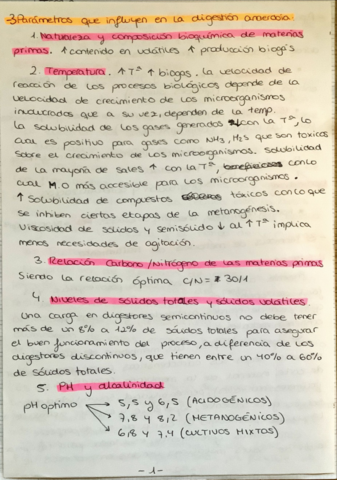 3 Parámetros que influyen en la digestión anaerobia.
1. Naturaleza y composición bioquímica de materias
primas. ↑ contenido en volátiles ↑ producción biogás
2. Temperatura. ↑Tª ↑ biogas. La velocidad de
reacción de los procesos biológicos depende de la
velocidad de crecimiento de los microorganismos
involucrados que a su vez, dependen de la temp.
La solubilidad de los gases generados ↓ con la Tª, lo
cual es positivo para gases como NH3, H2S que son tóxicos
sobre el crecimiento de los microorganismos. Solubilidad
de la mayoría de sales ↑ con la Tª, con lo
cual M.O más accesible para los microorganismos.
↑ Solubilidad de compuestos tóxicos con lo que
se inhiben ciertas etapas de la metanogénesis.
Viscosidad de solidos y semisólido ↓ al ↑Tª implica
menos necesidades de agitación.
3. Relación Carbono/Nitrógeno de las materias primas
Siendo la relación óptima C/N = 30/1
4. Niveles de sólidos totales y sólidos volatiles.
Una carga en digestores semicontinuos no debe tener
más de un 8% a 12% de sólidos totales para asegurar
el buen funcionamiento del proceso, a diferencia de los
digestores discontinuos, que tienen entre un 40% a 60%
de sólidos totales.
5. PH y alcalinidad
pH optimo → 5,5 y 6,5 (ACIDOGÉNICOS)
→ 7,8 y 8,2 (METANOGÉNICOS)
→ 6,8 y 7,4 (CULTIVOS MIXTOS)
-1-